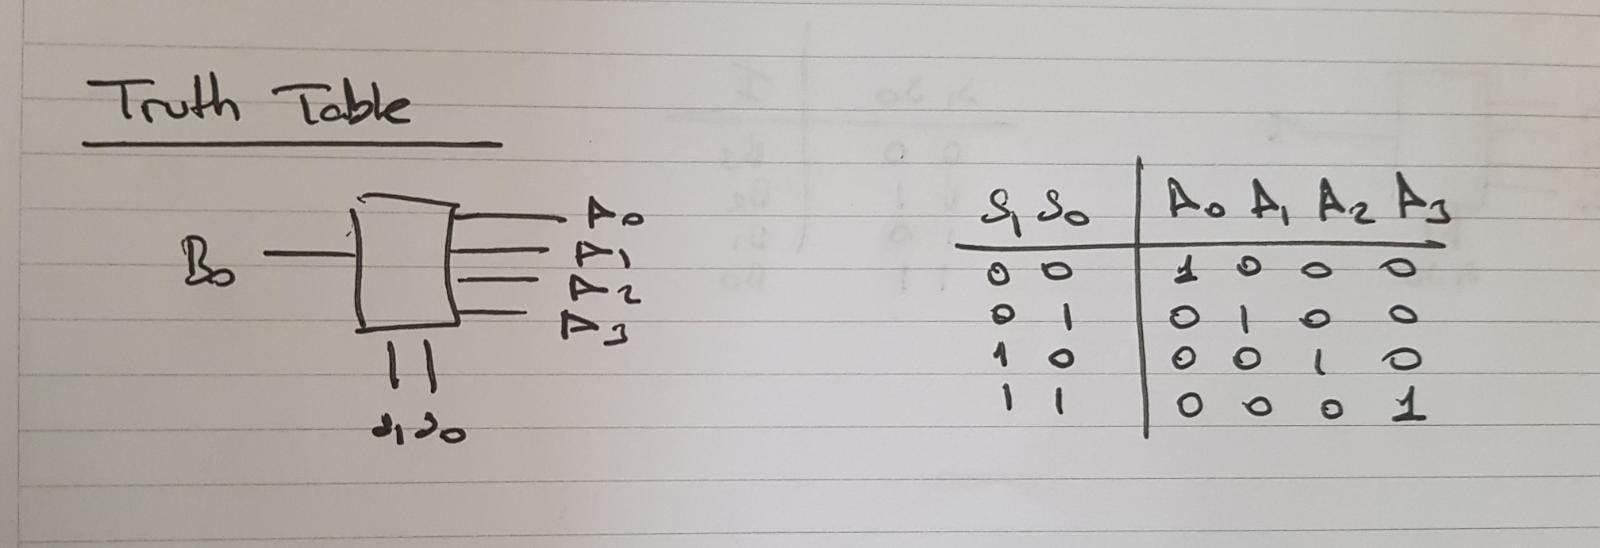 Truth Table
B₀
A₀
A₁
A₂
A₃
S₁ S₀
S₁ S₀ A₀ A₁ A₂ A₃
0 0 1 0 0 0
0 1 0 1 0 0
1 0 0 0 1 0
1 1 0 0 0 1